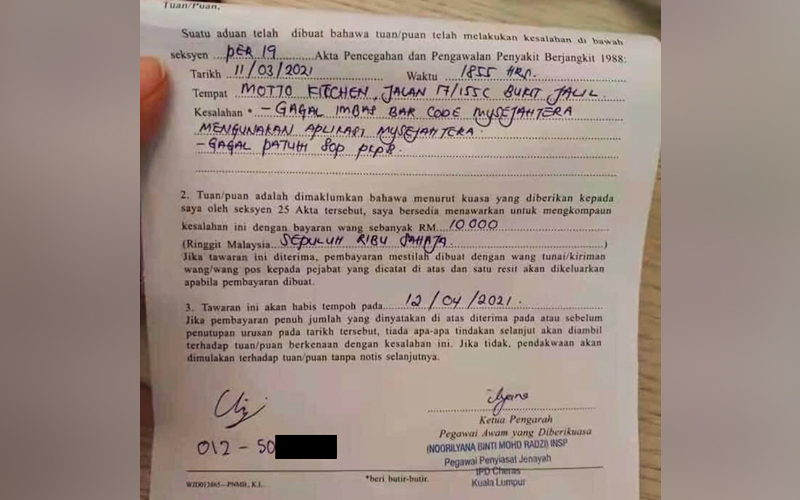 Tuan/Puan,
Suatu aduan telah dibuat bahawa tuan/puan telah melakukan kesalahan di bawah
seksyen PER 19 Akta Pencegahan dan Pengawalan Penyakit Berjangkit 1988:
Tarikh 11/03/2021 Waktu 1855 HRS.
Tempat MOTTO KITCHEN, JALAN 17/155C BUKIT JALIL.
Kesalahan * - GAGAL IMBAS BAR CODE MYSEJAHTERA
MENGUNAKAN APLIKASI MYSEJAHTERA.
- GAGAL PATUH SOP PKPB.
2. Tuan/puan adalah dimaklumkan bahawa menurut kuasa yang diberikan kepada
saya oleh seksyen 25 Akta tersebut, saya bersedia menawarkan untuk mengkompaun
kesalahan ini dengan bayaran wang sebanyak RM 10 000
(Ringgit Malaysia SEPULUH RIBU SAHAJA.)
Jika tawaran ini diterima, pembayaran mestilah dibuat dengan wang tunai/kiriman
wang/wang pos kepada pejabat yang dicatat di atas dan satu resit akan dikeluarkan
apabila pembayaran dibuat.
3. Tawaran ini akan habis tempoh pada 12/04/2021.
Jika pembayaran penuh jumlah yang dinyatakan di atas diterima pada atau sebelum
penutupan urusan pada tarikh tersebut, tiada apa-apa tindakan selanjut akan diambil
terhadap tuan/puan berkenaan dengan kesalahan ini. Jika tidak, pendakwaan akan
dimulakan terhadap tuan/puan tanpa notis selanjutnya.
Ketua Pengarah
Pegawai Awam yang Diberikuasa
012 - 50
(NOORILYANA BINTI MOHD RADZI) INSP
Pegawai Penyiasat Jenayah
IPD Cheras
Kuala Lumpur
*beri butir-butir.
WJD013865—PNMB, K.L.